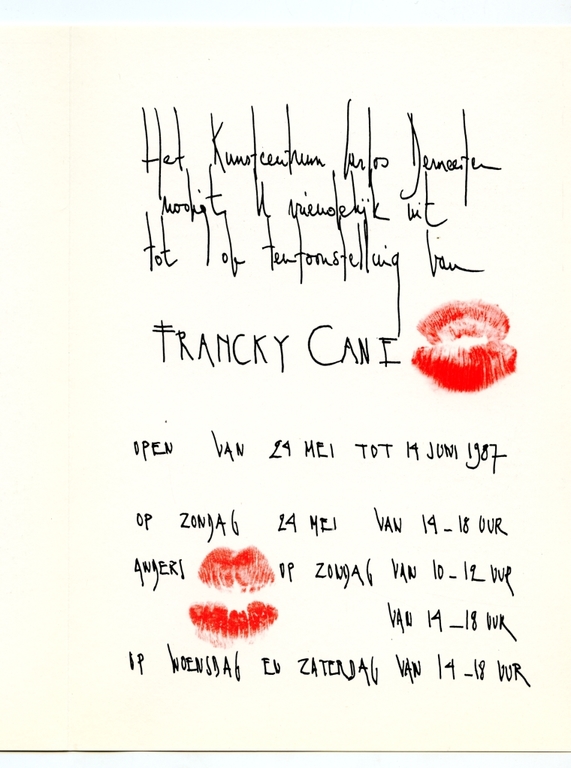 Het Kunstcentrum Carlos Demeester
nodigt U vriendelijk uit
tot de tentoonstelling van
FRANCKY CANE
OPEN VAN 24 MEI TOT 14 JUNI 1987
OP ZONDAG 24 MEI VAN 14-18 UUR
ANDERS OP ZONDAG VAN 10-12 UUR
VAN 14-18 UUR
OP WOENSDAG EN ZATERDAG VAN 14-18 UUR